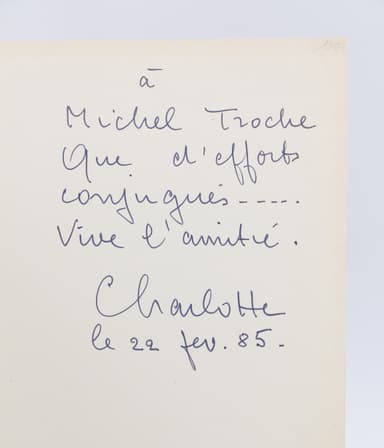 à
Michel Troche
Que d'efforts
conjugués ----.
Vive l'amitié.
Charlotte
le 22 fev. 85.-